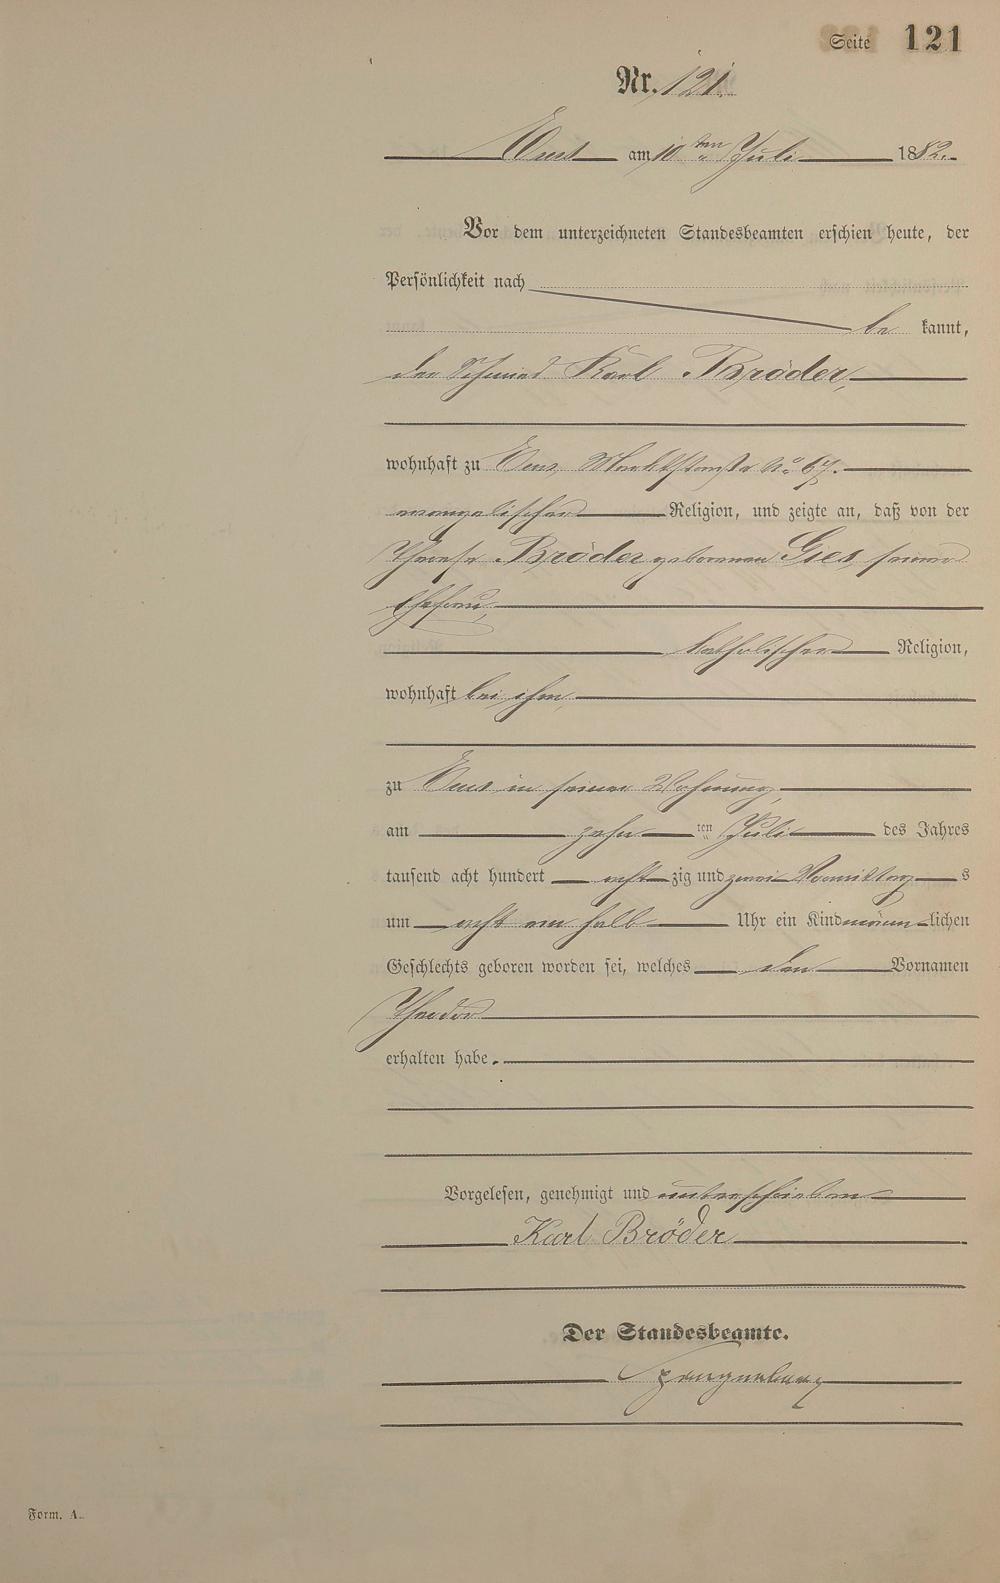 Seite 121
Nr. 121.
Ems am 10 ten Juli 1882.
Vor dem unterzeichneten Standesbeamten erschien heute, der
Persönlichkeit nach
be kannt,
der Schmied Karl Bröder,
wohnhaft zu Ems, Marktstraße No 67.
evangelischer Religion, und zeigte an, daß von der
Therese Bröder geborenen Gies, seiner
Ehefrau,
katholischer Religion,
wohnhaft bei ihm,
zu Ems in seiner Wohnung,
am zehn ten Juli des Jahres
tausend acht hundert acht zig und zwei Vormittag s
um acht ein halb Uhr ein Kind männ lichen
Geschlechts geboren worden sei, welches den Vornamen
Theodor
erhalten habe.
Vorgelesen, genehmigt und unterschrieben
Karl Bröder
Der Standesbeamte.
Spangenberg
Form. A.